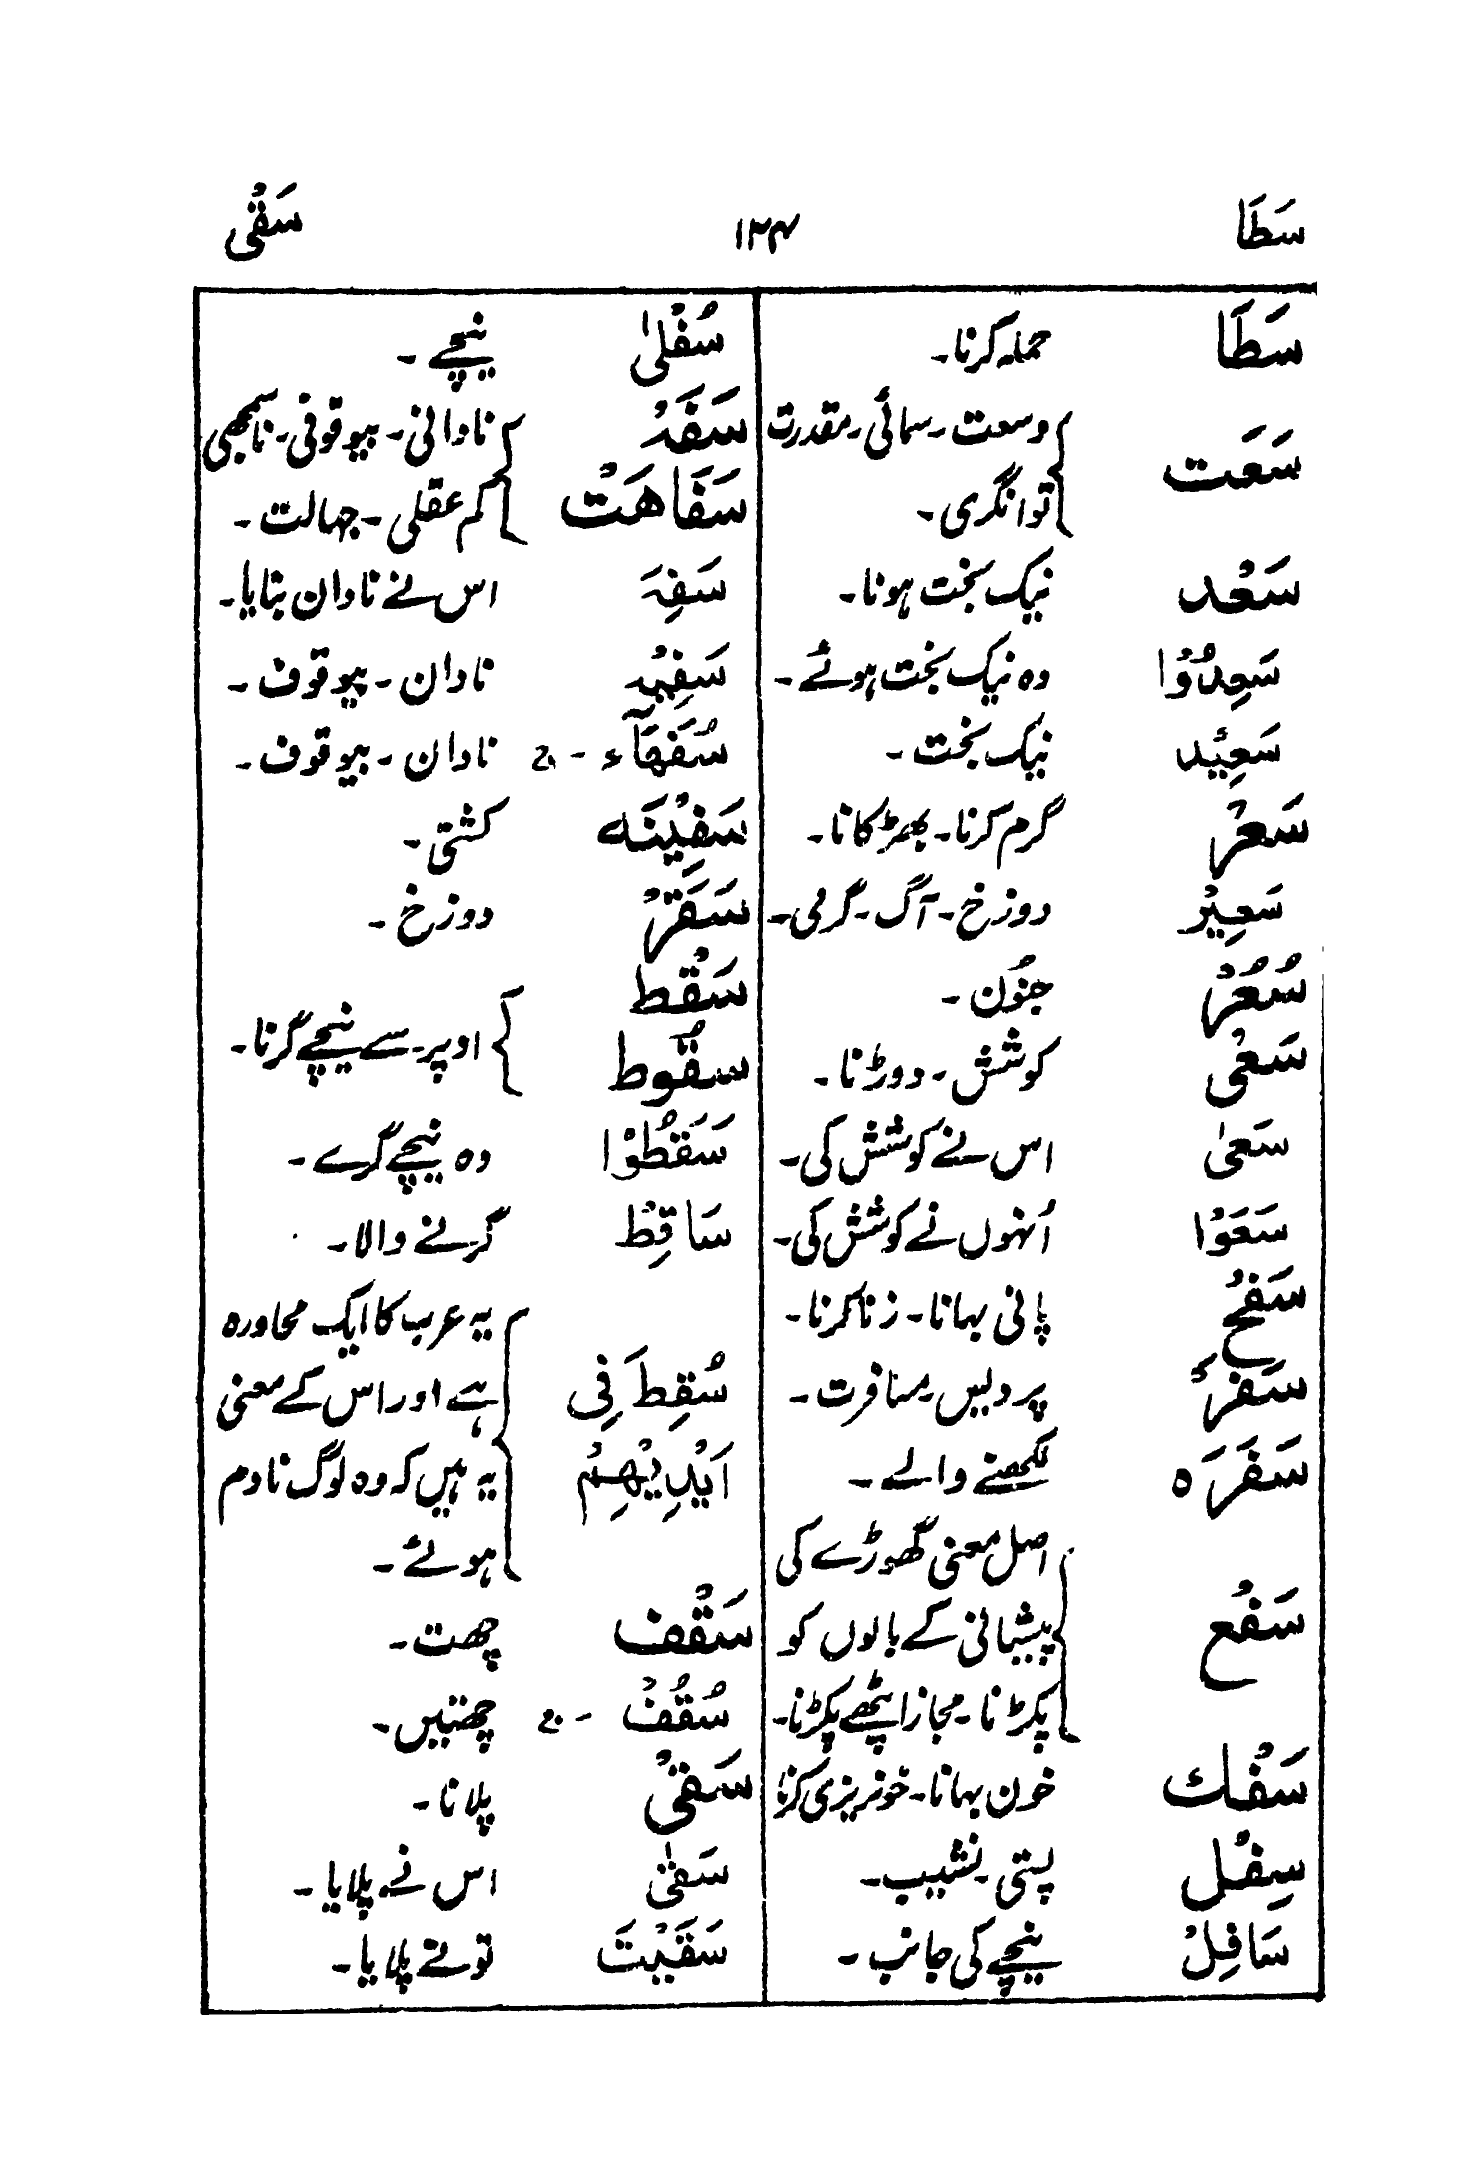 سَطَا ۱۲۴ سَقْی
سَطَا حملہ کرنا۔
سَعَت وسعت۔ سمائی۔ مقدرت
توانگری۔
سَعْد نیک بخت ہونا۔
سَعِدُوْا وہ نیک بخت ہوئے۔
سَعِیْد نیک بخت۔
سَعْر گرم کرنا۔ بھڑکانا۔
سَعِیْر دوزخ۔ آگ۔ گرمی۔
سُعُرْ جنُون۔
سَعْی کوشش۔ دوڑنا۔
سَعیٰ اس نے کوشش کی۔
سَعَوْا اُنہوں نے کوشش کی۔
سَفْح پانی بہانا۔ زنا کرنا۔
سَفَرْ پردیس۔ مسافرت۔
سَفَرَہ لکھنے والے۔
اصل معنی گھوڑے کی
سَفْع پیشانی کے بالوں کو
پکڑنا۔ مجازا پٹھے پکڑنا۔
سَفْك خون بہانا۔ خونریزی کرنا
سِفْل پستی۔ نشیب۔
سَافِلْ نیچے کی جانب۔
سُفْلیٰ نیچے۔
سَفَہْ نادانی۔ بیوقوفی۔ ناسمجھی
سَفَاهَتْ کم عقلی۔ جہالت۔
سَفِہَ اس نے نادان بنایا۔
سَفِیْہ نادان۔ بیوقوف۔
سُفَهَآء ۔ ج نادان۔ بیوقوف۔
سَفِیْنَہ کشتی۔
سَقَرْ دوزخ۔
سَقْط
اوپر سے نیچے گرنا۔
سقُوط
سَقَطُوْا وہ نیچے گرے۔
سَاقِطْ گرنے والا۔
یہ عرب کا ایک محاورہ
سُقِطَ فِی ہے اور اس کے معنی
اَیْدِیْهِمْ یہ ہیں کہ وہ لوگ نادم
ہوئے۔
سَقْف چھت۔
سُقُفْ ۔ ج چھتیں۔
سَقْیْ پلانا۔
سَقٰی اس نے پلایا۔
سَقَیْتَ تونے پلایا۔